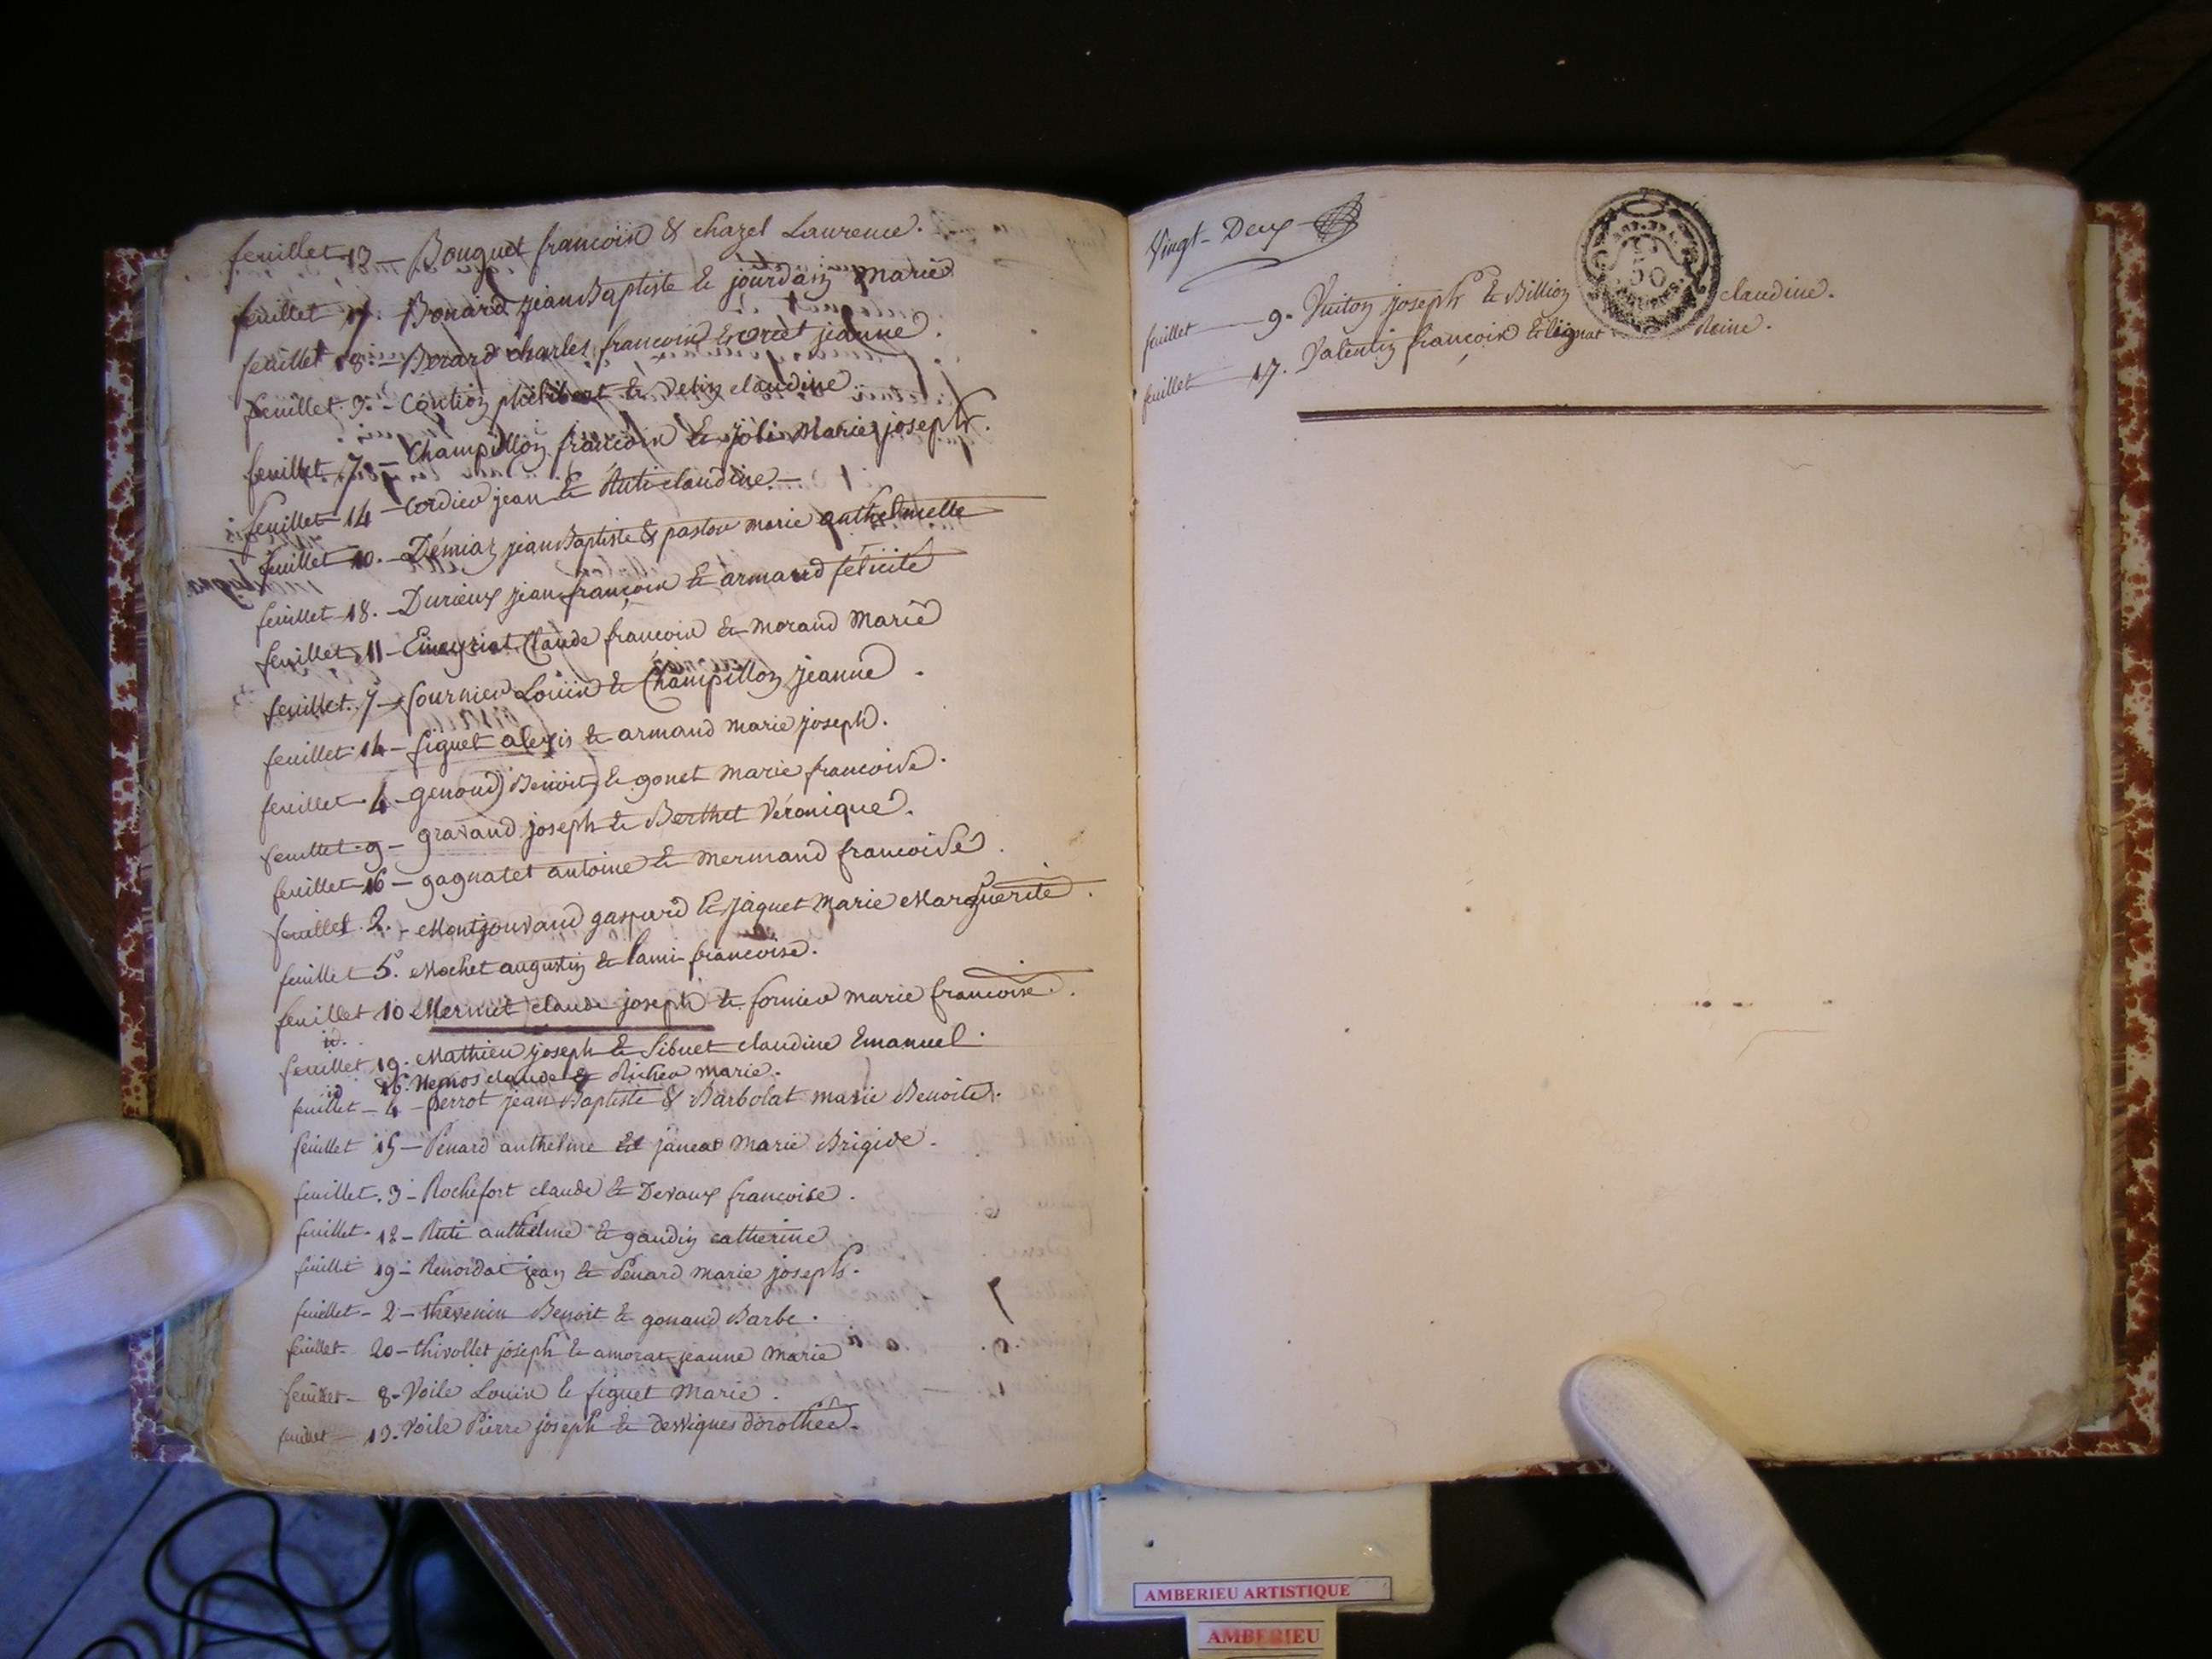 feuillet 13 — Bouguet francois & chazel Laurence.
feuillet 17 — Bonard jean Baptiste & jourdain marie
feuillet 18 — Berard charles francois & jeanne.
feuillet 3. — philibert & Velin claudine
feuillet 7 — Champillon francois & joli Marie joseph.
feuillet 14 — Cordier jean & Ruti claudine —
feuillet 10. — Démiaz jean Baptiste & pastor marie anthelmette
feuillet 18. — Durieux jean françois & armand félicité
feuillet 11 — Claude francois & morand Marie
feuillet 7 — fournier Louis & Champillon jeanne.
feuillet 14 — figuet alexis & armand marie joseph.
feuillet 4 — genoud Benoit & gonet marie francoise.
feuillet 9 — gravand joseph & Berthet Véronique.
feuillet 16 — gagnatet antoine & mermand francoise.
feuillet 2. — Montjouvand gaspard & jaquet Marie Marguerite.
feuillet 5. Mochet augustin & Lami francoise.
feuillet 10 Mermet claude joseph & fornier marie francoise.
id.
feuillet 19. Mathieu joseph & Sibuet claudine Emanuel.
id 16. Nemos claude & Richer marie.
feuillet — 4 — perrot jean Baptiste & Barbolat marie Benoite.
feuillet 15 — Penard anthelme & marie Brigide.
feuillet. 3 — Rochefort claude & Devaux francoise.
feuillet. 12 — Ruti anthelme & gaudin catherine
feuillet 19 — Renordat jean & Penard marie joseph.
feuillet — 2 — thevenin Benoit & gonand Barbe.
feuillet 20 — thivollet joseph & amorat jeanne Marie
feuillet — 8 — Voile Louis & figuet Marie.
feuillet — 13. Voile Pierre joseph & Desvignes dorothée.
Vingt-Deux
50
feuillet — 9. Vuiton joseph & Billion claudine.
feuillet — 17. Valentin françois & Lignat Reine.
AMBERIEU ARTISTIQUE
AMBERIEU